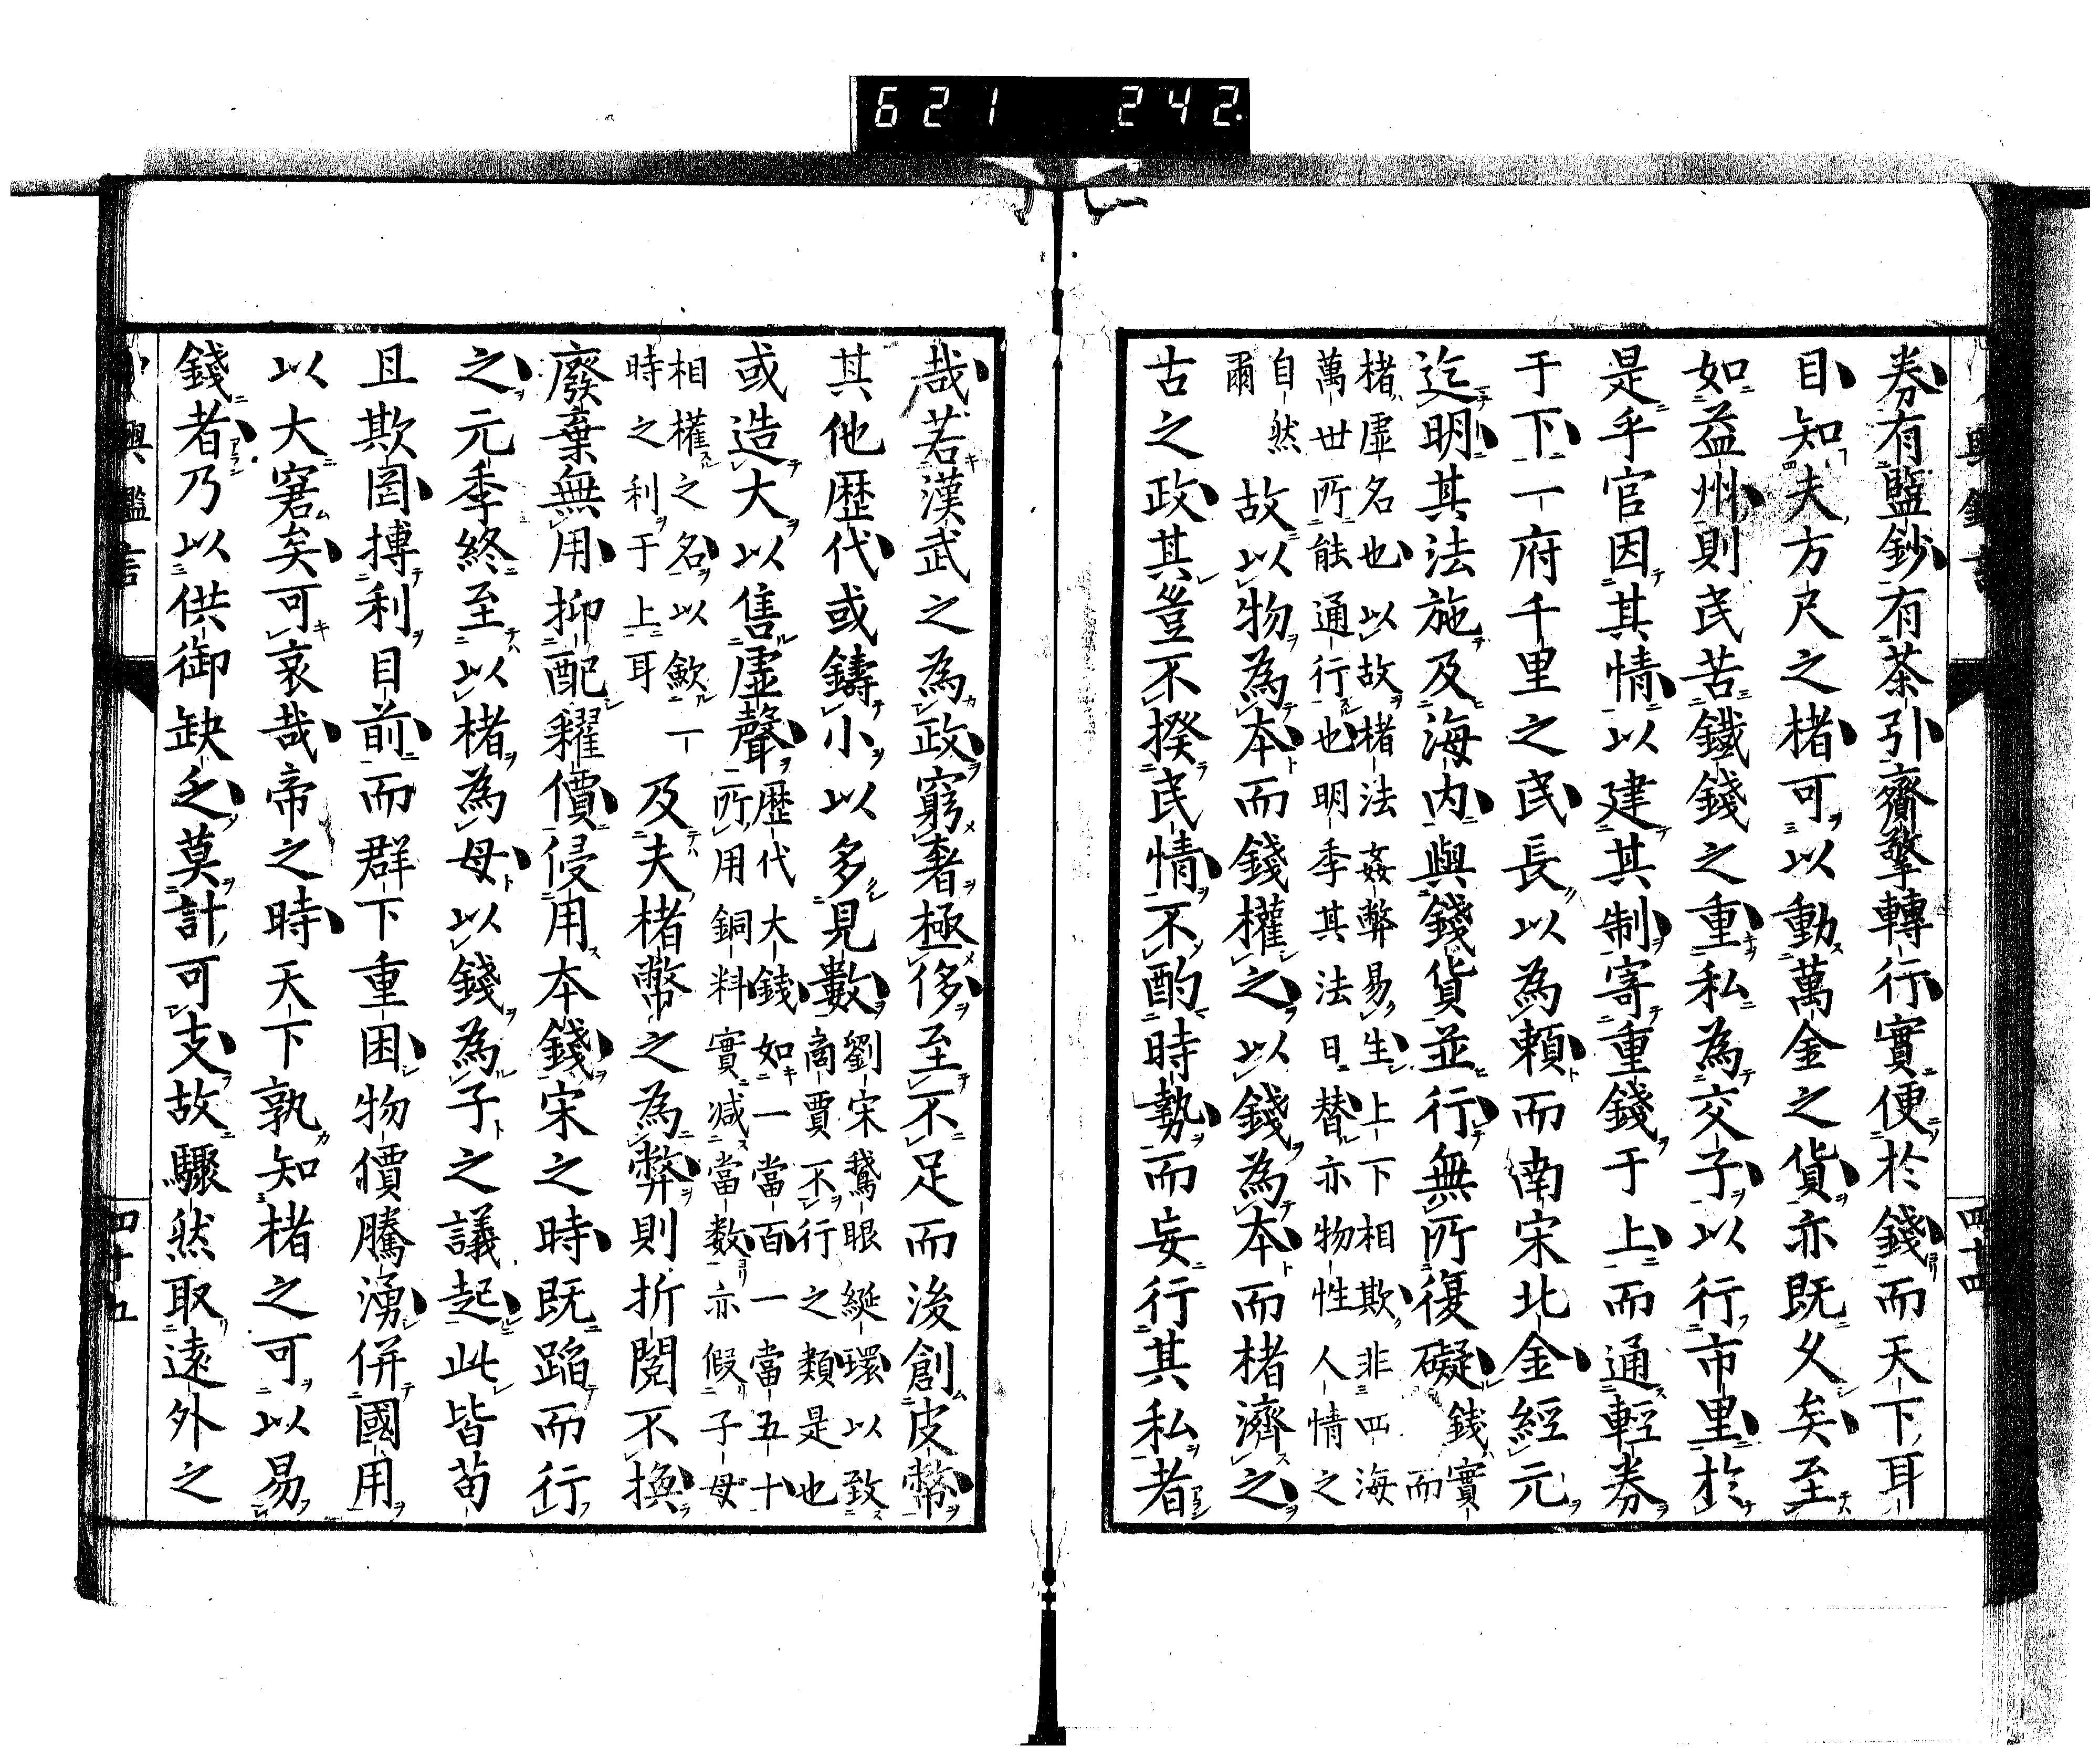 621 242.
券有鹽鈔有茶引齎擎轉行實便於錢而天下耳
目知夫方尺之楮可以動萬金之貨亦既久矣至
如益州則民苦鐵錢之重私為交子以行市里於
是乎官因其情以建其制寄重錢于上而通輕券
于下一府千里之民長以為賴而南宋北金經元
迄明其法施及海內與錢貨並行無所復礙錢實而
楮虛名也以故楮法姦弊易生上下相欺非四海
萬世所能通行也明季其法日替亦物性人情之
自然
爾
故以物為本而錢權之以錢為本而楮濟之
古之政其豈不揆民情不酌時勢而妄行其私者
四十四
哉若漢武之為政窮奢極侈至不足而後創皮幣
其他歷代或鑄小以多見數劉宋鵝眼綖環以致
商賈不行之類是也
或造大以售虛聲歷代大錢如一當百一當五十
所用銅料實減當數亦假子母
相權之名以歛一
時之利于上耳
及夫楮幣之為弊則折閱不換
廢棄無用抑配糴價侵用本錢宋之時既蹈而行
之元季終至以楮為母以錢為子之議起此皆苟
且欺罔摶利目前而群下重困物價騰湧併國用
以大窘矣可哀哉帝之時天下孰知楮之可以易
錢者乃以供御缺乏莫計可支故驟然取遠外之
興鑑言
四十五